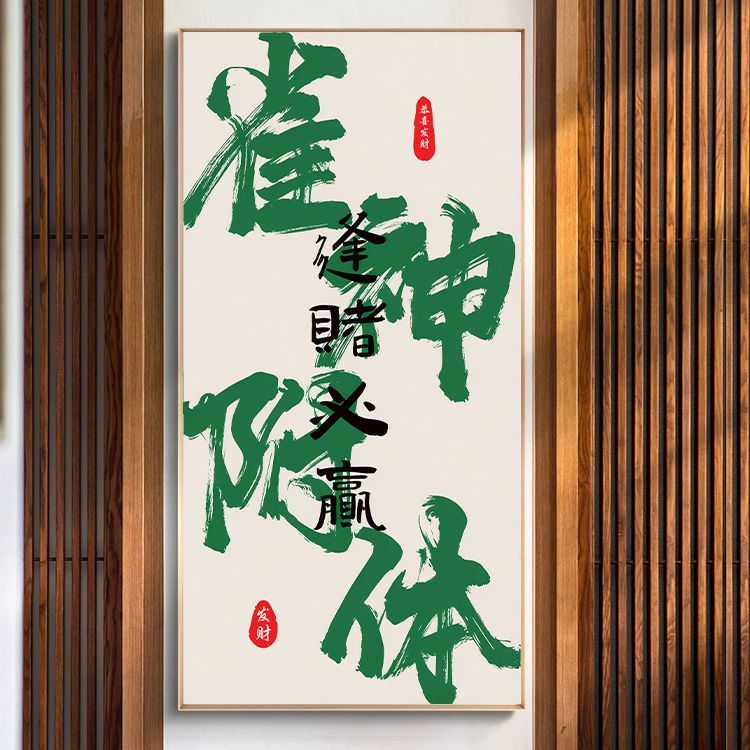 雀神附体
逢賭必贏
恭喜发财
发财